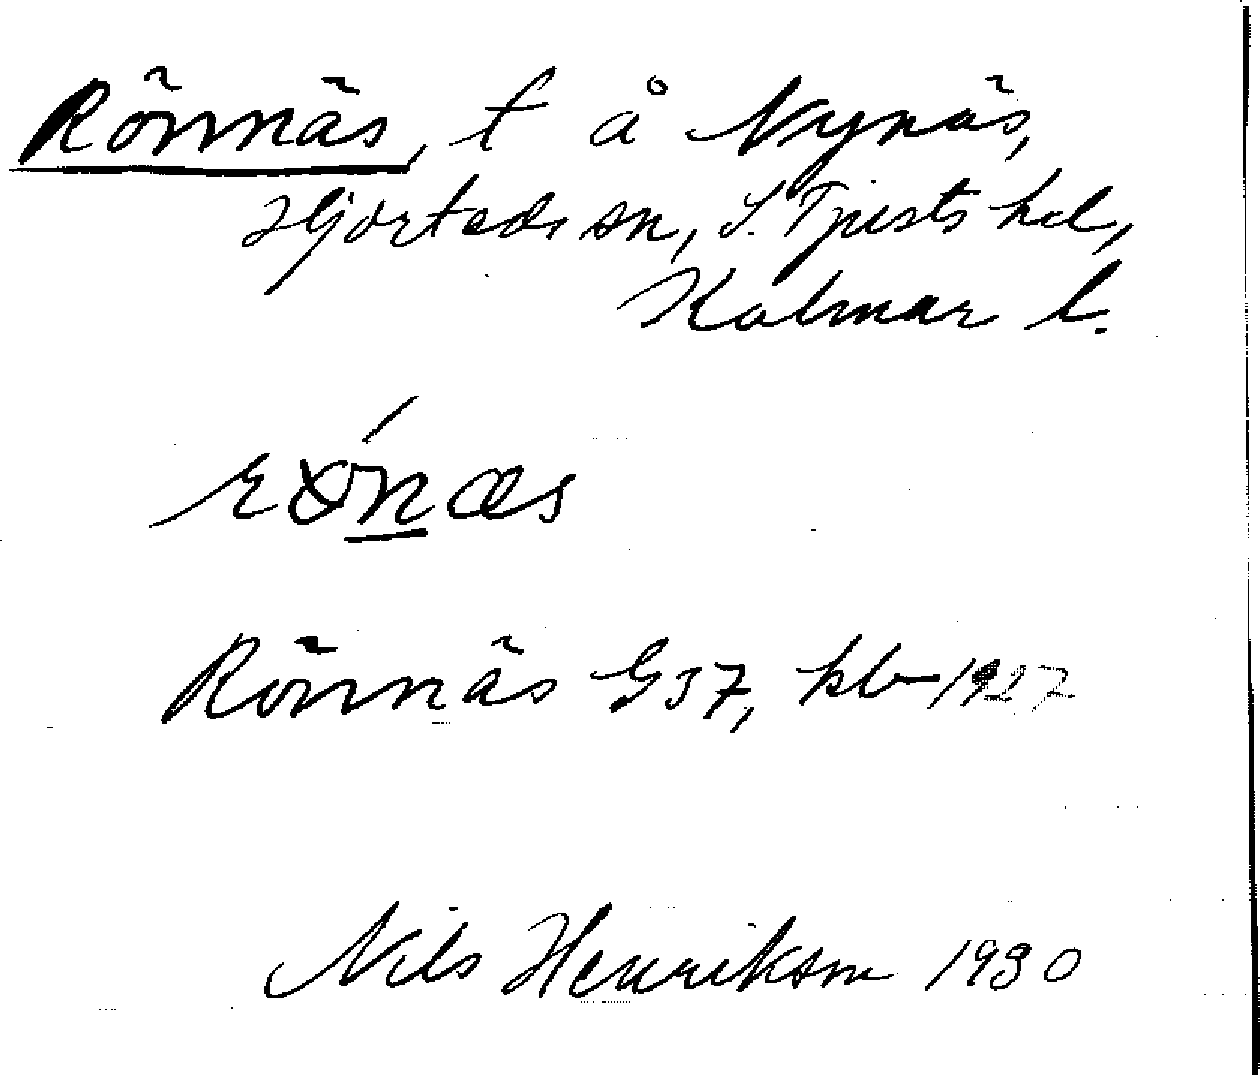 Rönnäs, t å Nynäs,
Hjorteds sn, S. Tjusts hd,
Kalmar l.
rǿnæs
Rönnäs G37, kb 1927
Nils Henrikson 1930